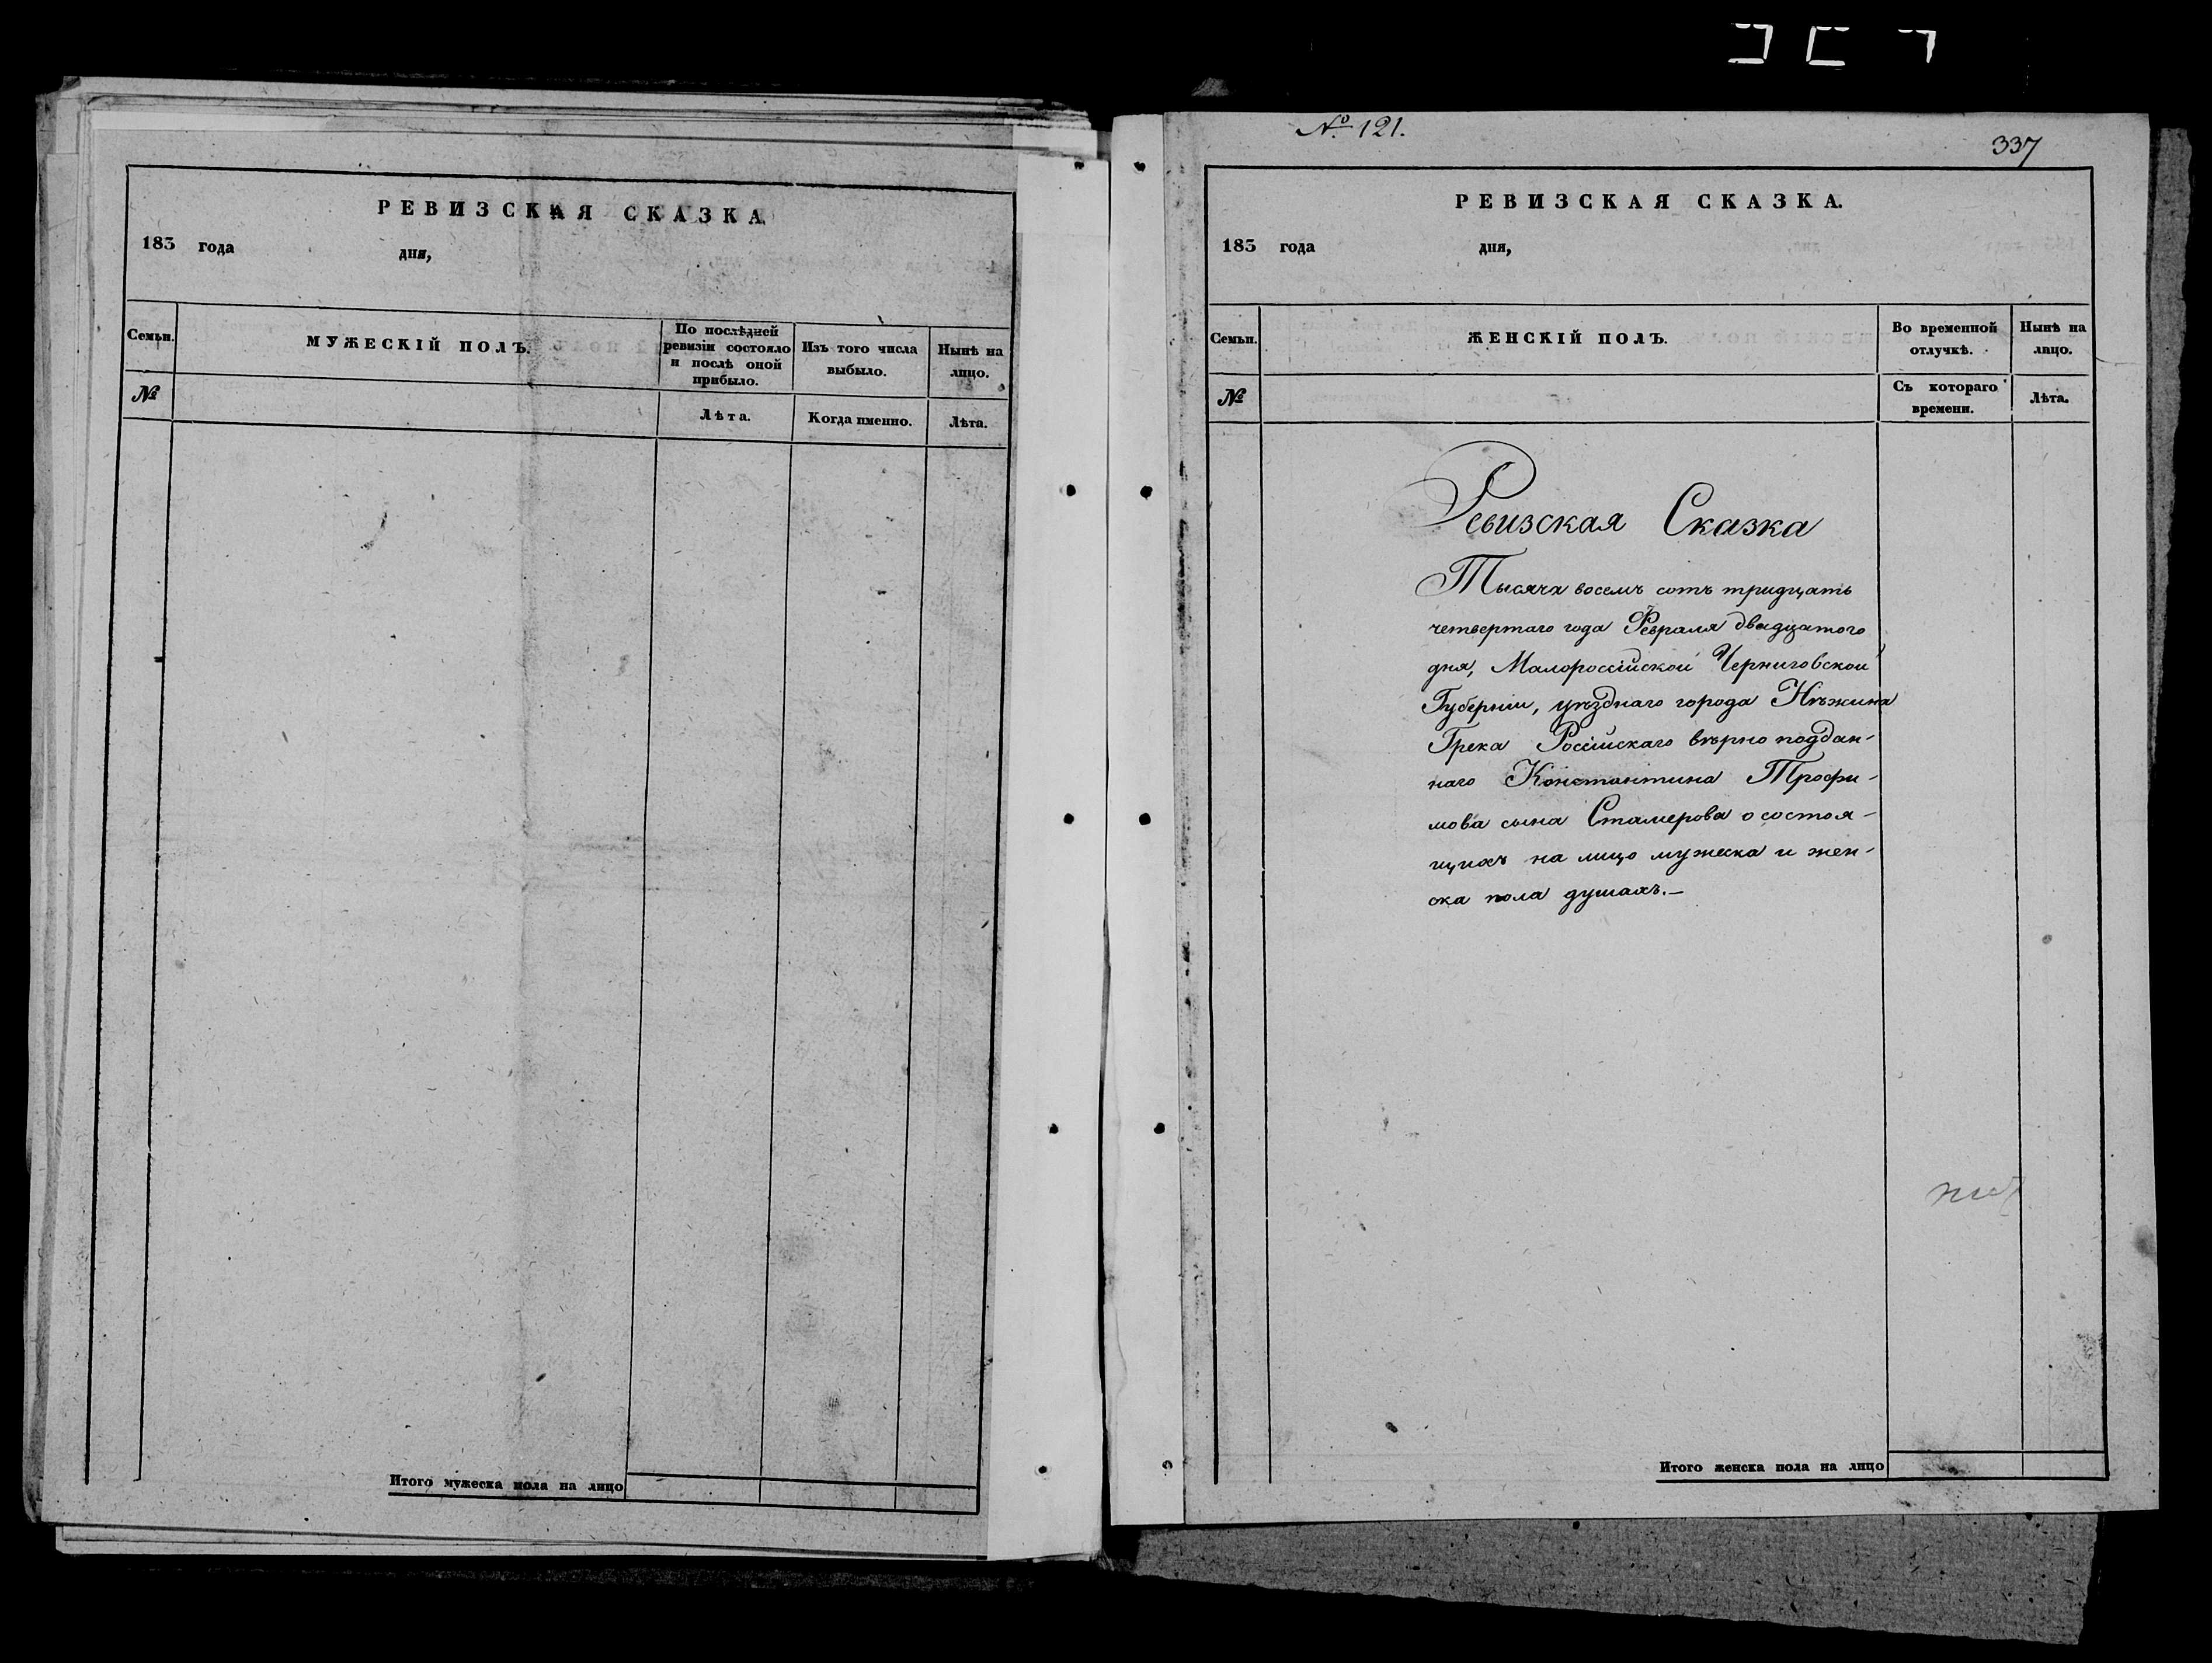 РЕВИЗСКАЯ СКАЗКА.
183 года дня,
Семьи.
МУЖЕСКІЙ ПОЛЪ.
По послѣдней
ревизіи состояло
и послѣ оной
прибыло.
Изъ того числа
выбыло.
Нынѣ на
лицо.
№
Лѣта.
Когда именно.
Лѣта.
Итого мужеска пола на лицо
№ 121.
337
РЕВИЗСКАЯ СКАЗКА.
183 года дня,
Семьи.
ЖЕНСКІЙ ПОЛЪ.
Во временной
отлучкѣ.
Нынѣ на
лицо.
№
Съ котораго
времени.
Лѣта.
Ревизская Сказка
Тысяча восемъ сотъ тридцать
четвертаго года Февраля двадцатого
дня, Малороссійской Черниговской
Губерніи, уѣзднаго города Нѣжина
Грека Россійскаго вѣрно поддан-
наго Константина Трофи-
мова сына Стамерова о состоя-
щихъ на лицо мужеска и жен-
ска пола душахъ.—
Итого женска пола на лицо